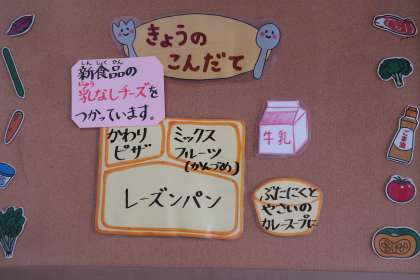 きょうの
こんだて
新食品の
しんしょくひん
乳なしチーズを
にゅう
つかっています。
かわり
ピザ
ミックス
フルーツ
(かんづめ)
レーズンパン
牛乳
ぶたにくと
やさいの
カレースープに